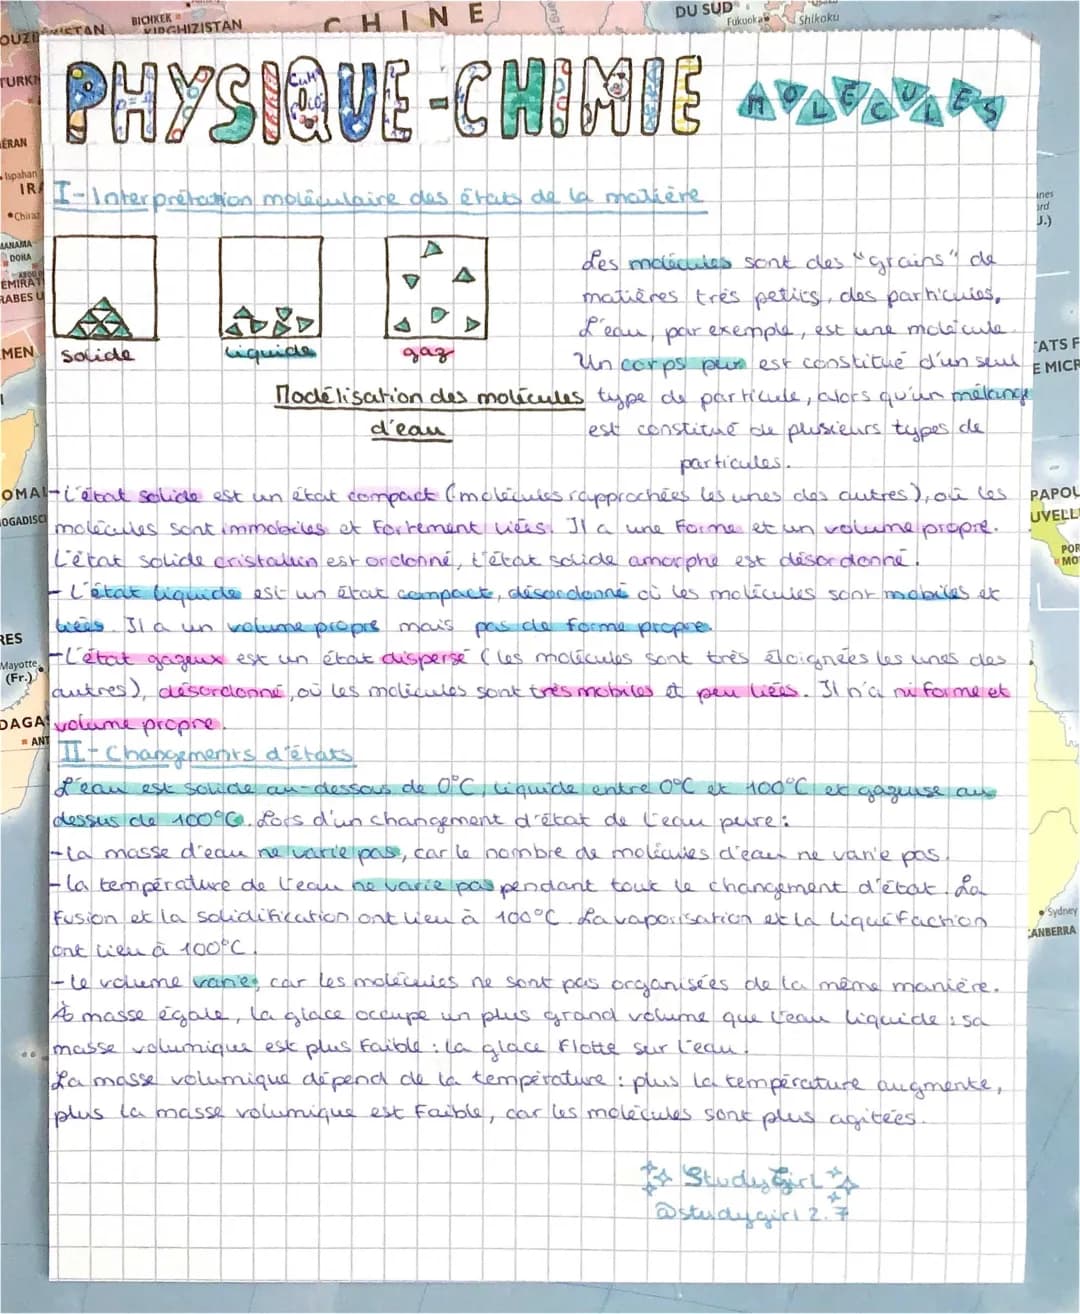 CHINE
DU SUD
BICHKEK
KIRGHIZISTAN
Fukuoka
Shikoku
PHYSIQUE-CHIMIE MOLÉCULES
I-Interprétation moléculaire des états de la matière
solide
liquide
gaz
Modélisation des molécules
d'eau
Les molécules sont des "grains" de
matières très petits, des particules.
L'eau, par exemple, est une molécule.
Un corps pur est constitué d'un seul
type de particule, alors qu'un mélange
est constitué de plusieurs types de
particules.
-L'état solide est un état compact (molécules rapprochées les unes des autres), où les
molécules sont immobiles et fortement liées. Il a une forme et un volume propre.
L'état solide cristallin est ordonné, l'état solide amorphe est désordonné.
-L'état liquide est un état compact, désordonné où les molécules sont mobiles et
liées. Il a un volume propre mais pas de forme propre.
-L'état gazeux est un état dispersé (les molécules sont très éloignées les unes des
autres), désordonné, où les molécules sont très mobiles et peu liées. Il n'a ni forme et
volume propre.
II-Changements d'états
L'eau est solide au-dessous de 0°C, liquide entre 0°C et 100°C et gazeuse au
dessus de 100°C. Lors d'un changement d'état de l'eau pure:
-la masse d'eau ne varie pas, car le nombre de molécules d'eau ne varie pas.
-la température de l'eau ne varie pas pendant tout le changement d'état. La
fusion et la solidification ont lieu à 100°C. La vaporisation et la liquéfaction
ont lieu à 100°C.
-le volume varie, car les molécules ne sont pas organisées de la même manière.
À masse égale, la glace occupe un plus grand volume que l'eau liquide: sa
masse volumique est plus faible: la glace flotte sur l'eau.
La masse volumique dépend de la température: plus la température augmente,
plus la masse volumique est faible, car les molécules sont plus agitées.
StudyGirl
@studygirl2.7
Ispahan
Chiraz
DOHA
Mayotte
(Fr.)
Sydney